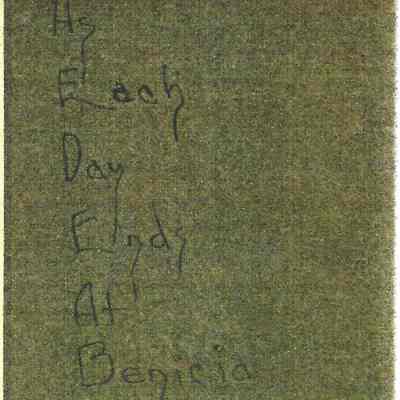 As
Each
Day
Ends
At
Benicia